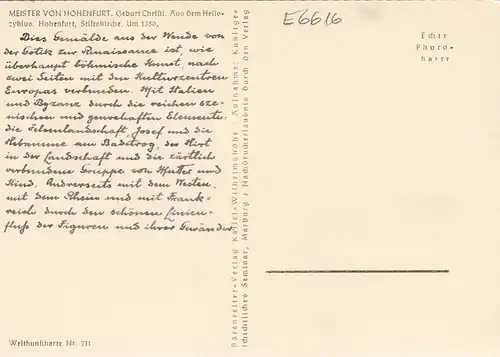 MEISTER VON HOHENFURT. Geburt Christi. Aus dem Heils-
zyklus. Hohenfurt, Stiftskirche. Um 1350.
Dies Gemälde aus der Wende von
der Gotik zur Renaissance ist, wie
überhaupt böhmische Kunst, nach
zwei Seiten mit den Kulturzentren
Europas verbunden. Mit Italien
und Byzanz durch die reichen sze-
nischen und genrehaften Elemente:
die Felsenlandschaft, Josef und die
Hebamme am Badetrog, der Hirt
in der Landschaft und die zärtlich
verbundene Gruppe von Mutter und
Kind. Andrerseits mit dem Westen,
mit dem Rhein und mit Frank-
reich durch den schönen Linien-
fluß der Figuren und ihrer Gewänder
Weltkunstkarte Nr. 711
Bärenreiter-Verlag Kassel-Wilhelmshöhe / Aufnahme: Kunstge-
schichtliches Seminar, Marburg / Nachdruckerlaubnis durch den Verlag
E6616
Echte
Photo-
karte